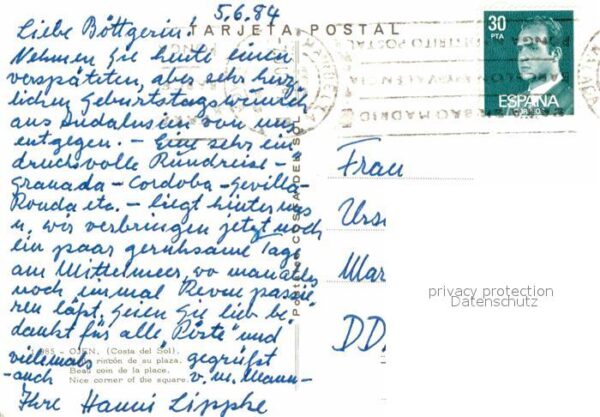 5.6.84
Liebe Böttgerin!
TARJETA POSTAL
Nehmen Sie heute einen
verspäteten, aber sehr herz-
lichen Geburtstagswunsch
aus Andalusien von uns
entgegen. – Eine sehr ein-
drucksvolle Rundreise –
Granada – Cordoba – Sevilla –
Ronda etc. – liegt hinter uns
u. wir verbringen jetzt noch
ein paar geruhsame Tage
am Mittelmeer, wo man alles
noch einmal Revue passie-
ren läßt. Seien Sie lieb be-
dankt für alle "Pöste" und
vielemals gegrüßt
- auch v. m. Mann -
Ihre Hanni Lippke
985 - OJEN. (Costa del Sol).
rincón de su plaza.
Beau coin de la place.
Nice corner of the square.
COSTA DEL SOL
30
PTA
ESPAÑA
MALAGA
Frau
Urs
Mar
DD
privacy protection
Datenschutz